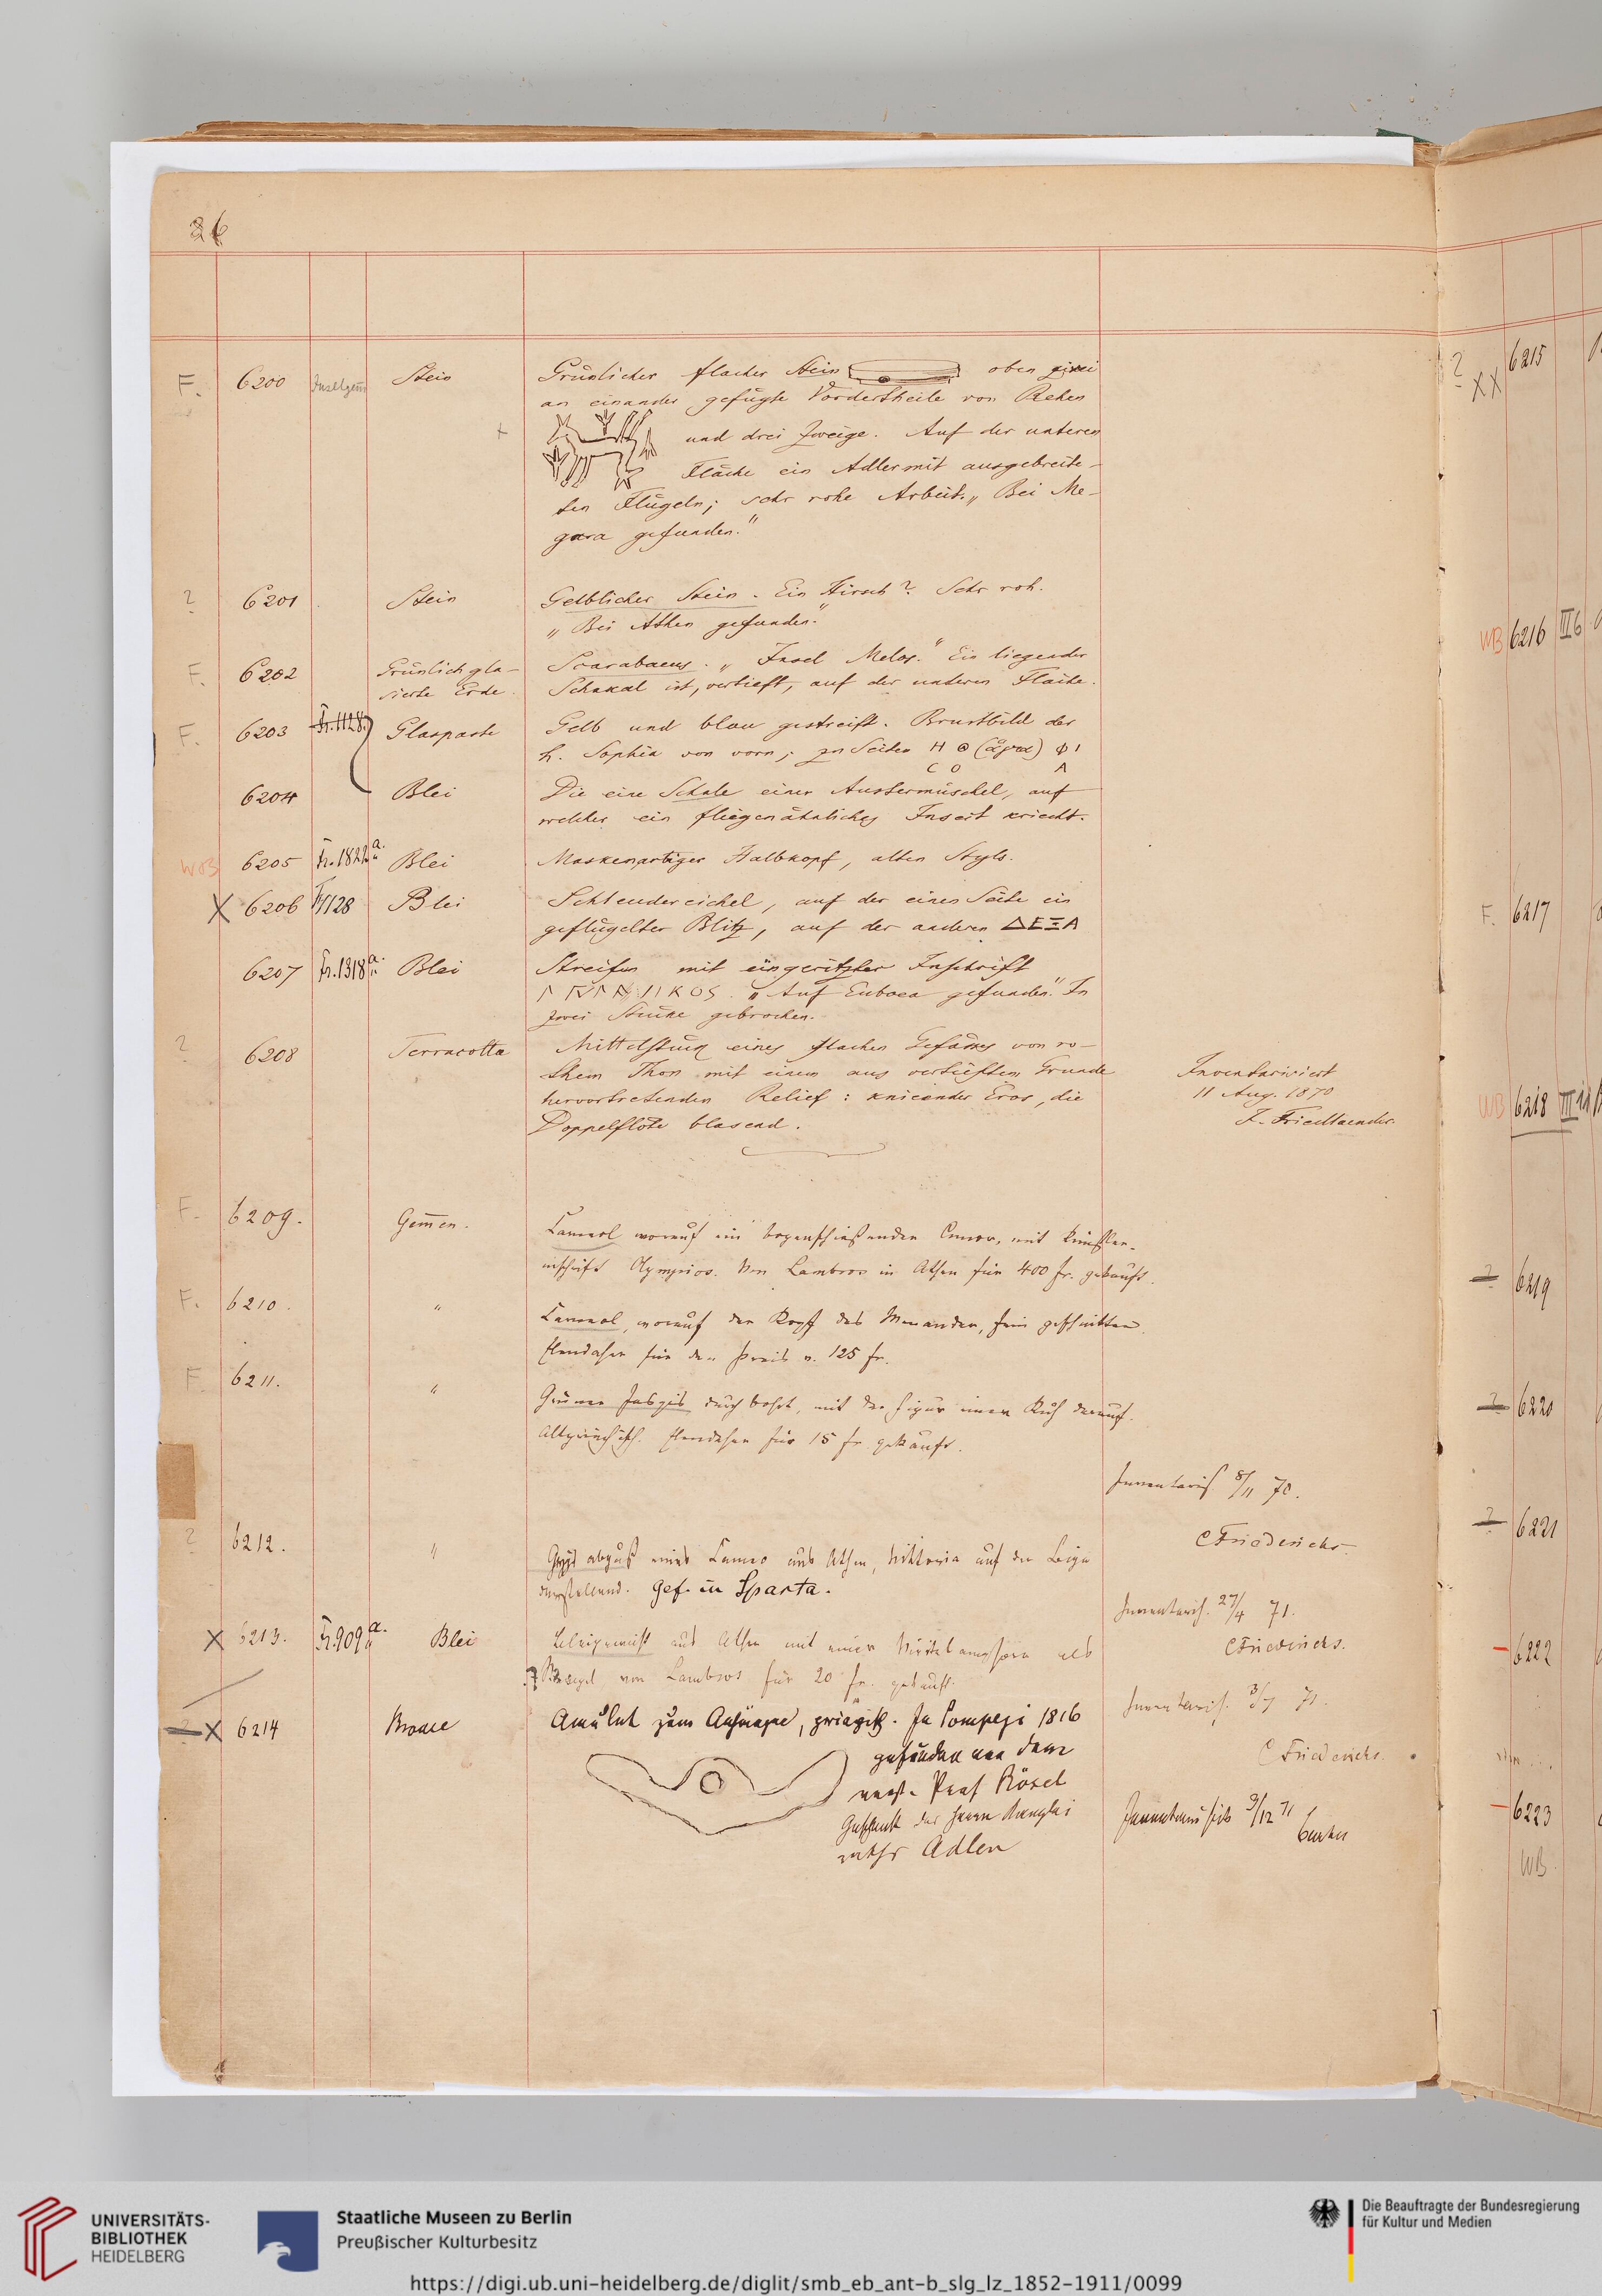 26
F. 6200 Inselgem Stein Grünlicher flacher Stein oben zwei
an einander gefügte Vordertheile von Rehen
und drei Zweige. Auf der unteren
Fläche ein Adler mit ausgebreite-
ten Flügeln; sehr rohe Arbeit. „Bei Me-
gara gefunden."
? 6201 Stein Gelblicher Stein. Ein Hirsch? Sehr roh.
„Bei Athen gefunden."
F. 6202 Grünlich gla- Scarabaeus. „Insel Melos." Ein liegender
sierte Erde Schakal ist, vertieft, auf der unteren Fläche.
F. 6203 Fr. 1128. Glaspaste Gelb und blau gestreift. Brustbild der
h. Sophia von vorn; zu Seiten Η Θ (ἁγια) Φ Ι
C O Λ
6204 Blei Die eine Schale einer Austermuschel, auf
welcher ein fliegenähnliches Insect kriecht.
WB 6205 Fr. 1822 a. Blei Maskenartiger Halbkopf, alten Styls.
X 6206 Fr 1128 Blei Schleudereichel, auf der einen Seite ein
geflügelter Blitz, auf der anderen ΔΕΞΑ
6207 Fr. 1318 a. Blei Streifen mit eingeritzter Inschrift
„Auf Euboea gefunden." In
zwei Stücke gebrochen.
? 6208 Terracotta Mittelstück eines flachen Gefässes von ro-
them Thon mit einem aus vertieftem Grunde
hervortretenden Relief: knieender Eros, die
Doppelflöte blasend.
Inventarisirt
11 Aug. 1870
J. Friedlaender.
F. 6209. Gem̄en. Carneol worauf ein bogenschießender Amor, mit Künstler-
inschrift Olympios. Von Lambros in Athen für 400 fr. gekauft.
F. 6210. " Carneol, worauf der Kopf des Menander, fein geschnitten.
Ebendaher für den Preis v. 125 fr.
F. 6211. " Grüner Jaspis durchbohrt, mit der Figur einer Kuh darauf.
Altgriechisch. Ebendaher für 15 fr gekauft.
Inventaris. 8/11 70.
C Friederichs.
? 6212. " Gypsabguß eines Cameo aus Athen, Viktoria auf der Biga
darstellend. Gef. in Sparta.
Inventaris. 27/4 71.
C Friederichs.
X 6213. Fr. 909 a. Blei Bleigewicht aus Athen mit einer Viertelamphora als
Siegel von Lambros für 20 fr. gekauft.
Inventaris. 3/7 71.
C Friederichs.
X 6214 Bronce Amulet zum Anhängen, In Pompeji 1816
gefunden von dem
verst. Prof Rösel
Geschenk des Herrn Kanzlei
raths Adler
Inventarisirt 9/12 71
Curtius
? XX 6215
WB 6216 III 6
F. 6217
WB 6218 III 11
? 6219
? 6220
? 6221
6222
6223
WB.
UNIVERSITÄTS-
BIBLIOTHEK
HEIDELBERG
Staatliche Museen zu Berlin
Preußischer Kulturbesitz
Die Beauftragte der Bundesregierung
für Kultur und Medien
https://digi.ub.uni-heidelberg.de/diglit/smb_eb_ant-b_slg_lz_1852-1911/0099